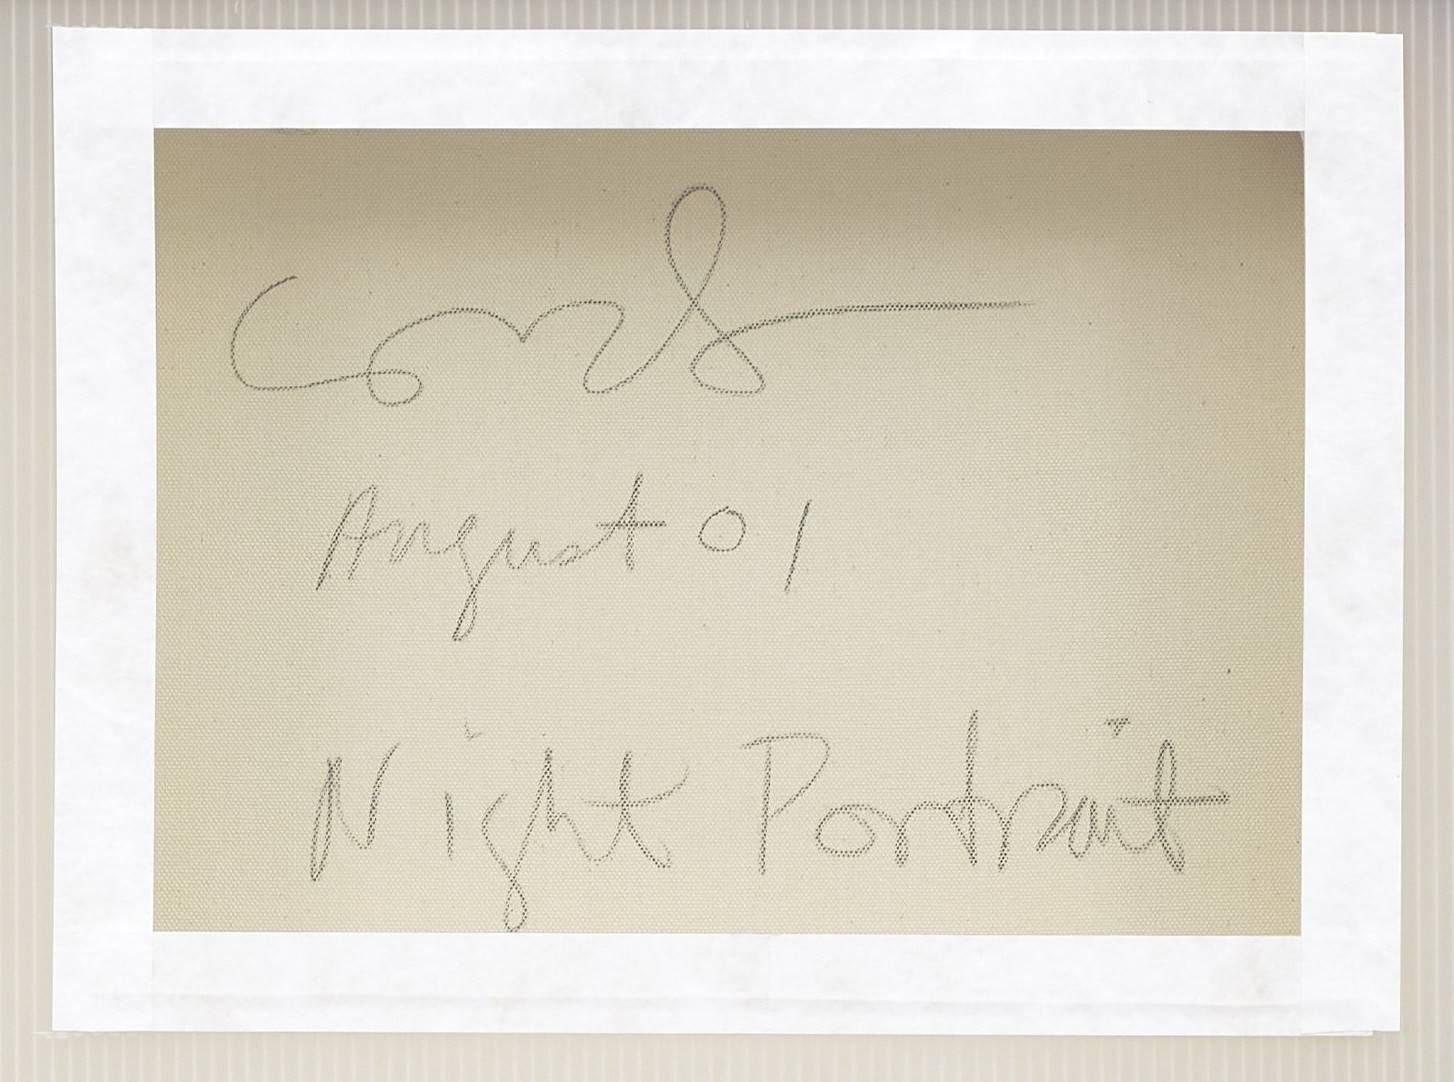 August 01
Night Portrait